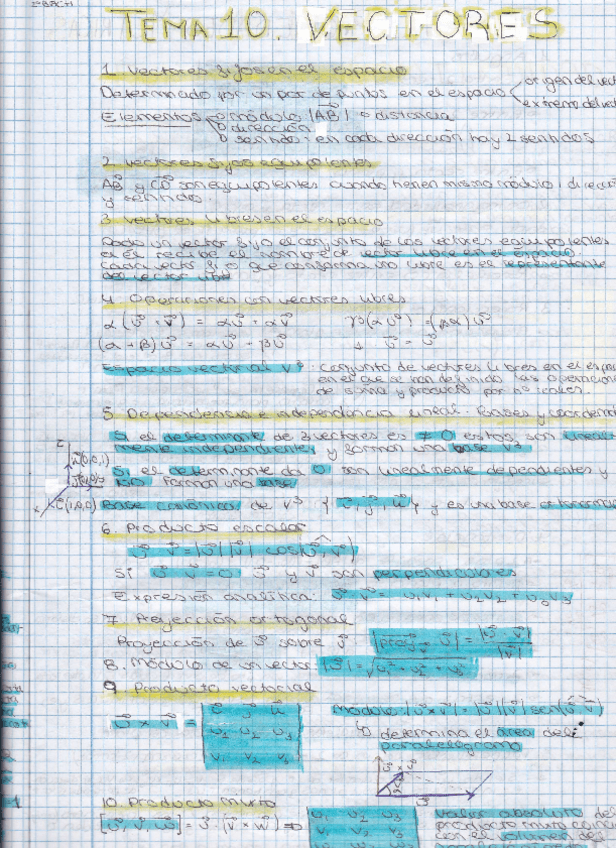 2º BACH
TEMA 10. VECTORES
1. Vectores fijos en el espacio
Determinado por un par de puntos en el espacio
origen del vect
extremo del vec
Elementos módulo |AB| = distancia
dirección
sentido: en cada dirección hay 2 sentidos
2. Vectores fijos equipolentes
AB y CD son equipolentes cuando tienen mismo módulo, direcci
y sentido.
3. Vectores libres en el espacio
Dado un vector fijo el conjunto de los vectores equipolentes
a él recibe el nombre de vector libre en el espacio
cada vector fijo que conforma uno libre es el representante
del vector libre
4. Operaciones con vectores libres
α(u + v) = αu + αv
β(αu) = (βα)u
(α + β)u = αu + βu
1 · u = u
Espacio vectorial V³: conjunto de vectores libres en el espa
en el que se han definido las operacion
de suma y producto por escalar.
5. Dependencia e independencia lineal. Bases y coorden
Si el determinante de 3 vectores es ≠ 0 estos son lineal
mente independientes y forman una base V³
Si el determinante da 0 son linealmente dependientes y
no forman una base
Base canónica de V³ {i, j, k} y es una base ortonormal
z
k(0,0,1)
x
i(1,0,0)
6. Producto escalar
u · v = |u| |v| cos(u, v)
Si u · v = 0 u y v son perpendiculares
Expresión analítica: u · v = u1v1 + u2v2 + u3v3
7. Proyección ortogonal
Proyección de u sobre v |proy u| = |u · v| / |v|
8. Módulo de un vector |u| = √u1² + u2² + u3²
9. Producto vectorial
u × v =
i j k
u1 u2 u3
v1 v2 v3
Módulo: |u × v| = |u| |v| sen(u, v)
determina el área del
paralelogramo
10. Producto mixto
[u, v, w] = u · (v × w) ⇒
u1 u2 u3
v1 v2 v3
valor absoluto del
producto mixto coinci
con el volumen del